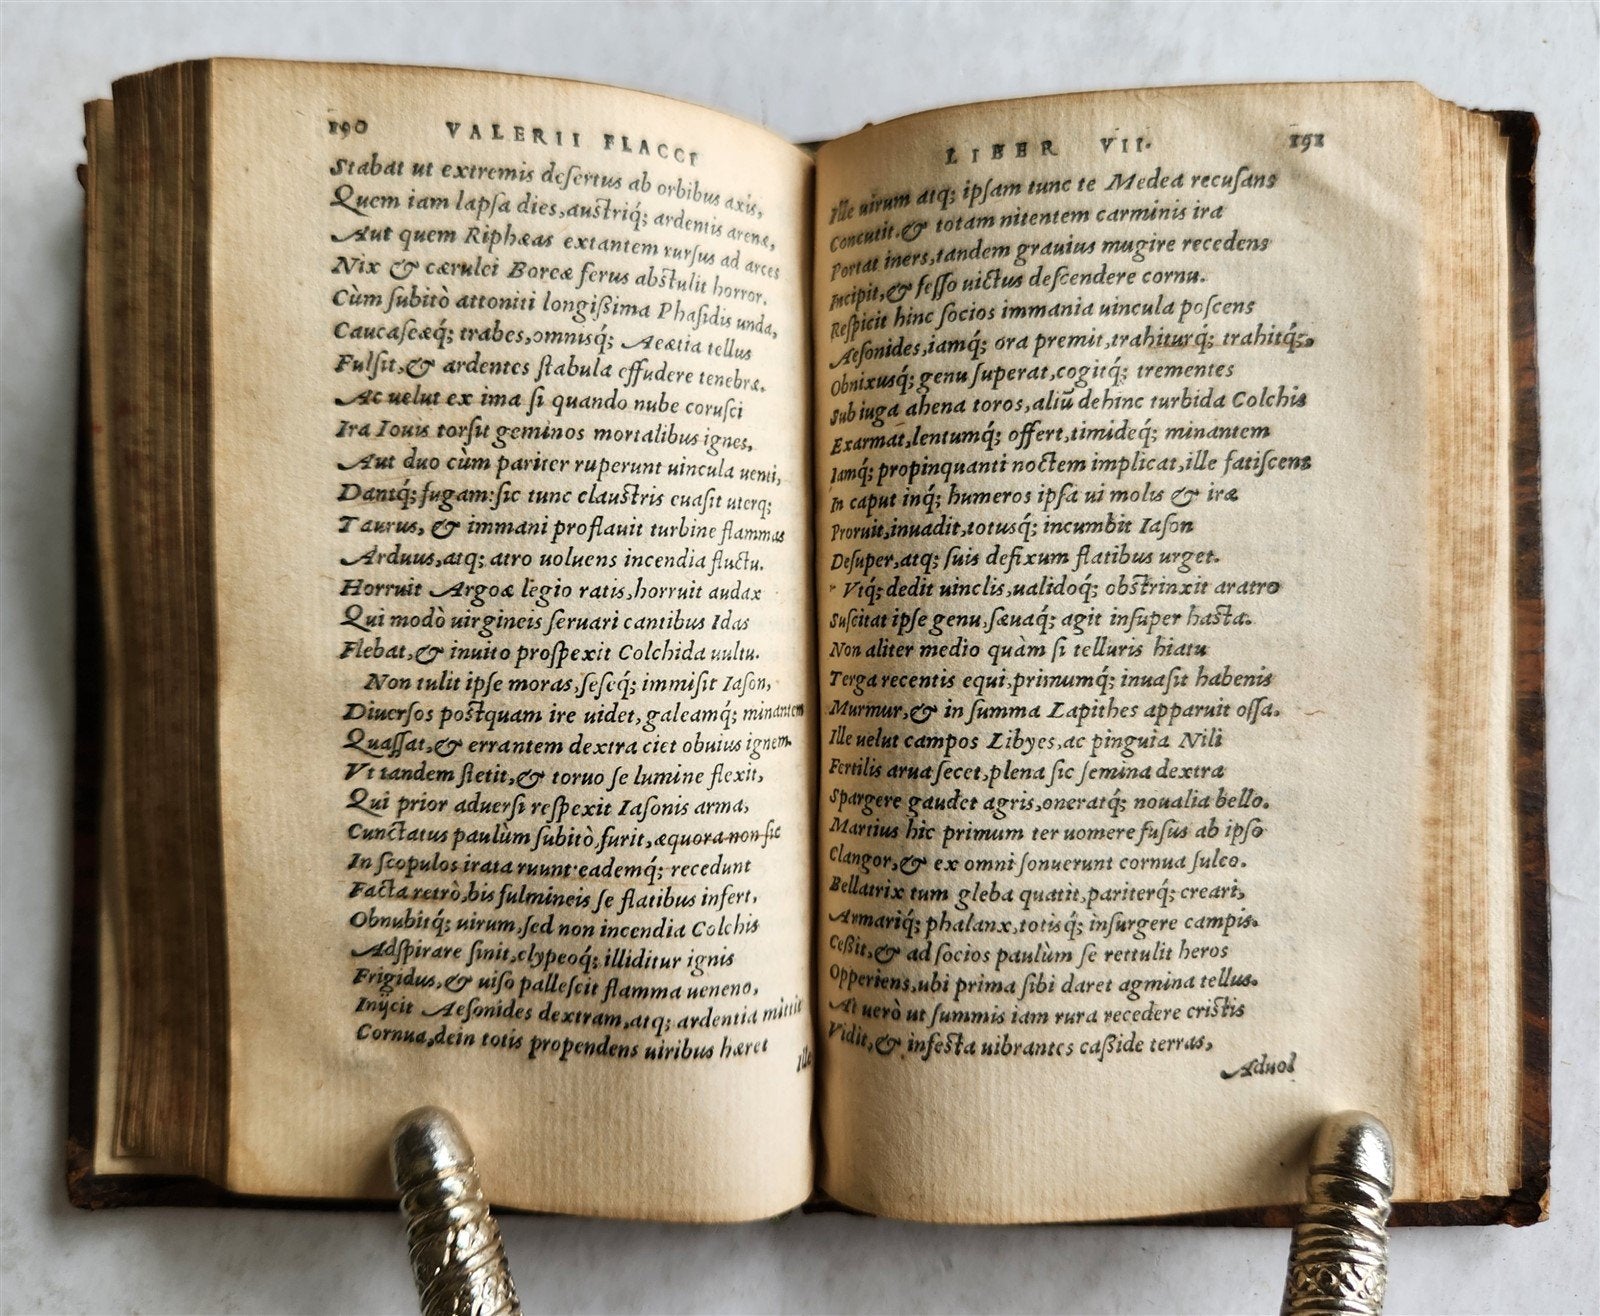 190 VALERII FLACCI
Stabat ut extremis desertus ab orbibus axis,
Quem iam lapsa dies, austriq́; ardentis arenæ,
Aut quem Riphæas extantem rursus ad arces
Nix & cærulei Boreæ ferus abstulit horror.
Cùm subitò attoniti longißima Phasidis unda,
Caucaseæq́; trabes, omnisq́; Aeætia tellus
Fulsit, & ardentes stabula effudere tenebræ.
Ac uelut ex ima si quando nube corusci
Ira Iouis torsit geminos mortalibus ignes,
Aut duo cùm pariter ruperunt uincula uenti,
Dantq́; fugam: sic tunc claustris euasit uterq;
Taurus, & immani proflauit turbine flammas
Arduus, atq; atro uoluens incendia fluctu.
Horruit Argoæ legio ratis, horruit audax
Qui modò uirgineis seruari cantibus Idas
Flebat, & inuito prospexit Colchida uultu.
Non tulit ipse moras, seseq́; immisit Iason,
Diuersos postquam ire uidet, galeamq́; minantem
Quassat, & errantem dextra ciet obuius ignem.
Vt tandem stetit, & toruo se lumine flexit,
Qui prior aduersi respexit Iasonis arma,
Cunctatus paulùm subitò, furit, æquora non sic
In scopulos irata ruunt eademq́; recedunt
Facta retrò, bis fulmineis se flatibus infert,
Obnubitq́; uirum, sed non incendia Colchis
Adspirare sinit, clypeoq́; illiditur ignis
Frigidus, & uiso pallescit flamma ueneno,
Inijcit Aesonides dextram, atq; ardentia mittit
Cornua, dein totis propendens uiribus hæret
Ille
LIBER VII. 191
Ille uirum atq; ipsam tunc te Medea recusans
Concutit. & totam nitentem carminis ira
Portat iners, tandem grauius mugire recedens
Incipit, & fesso uictus descendere cornu.
Respicit hinc socios immania uincula poscens
Aesonides, iamq́; ora premit, trahiturq́; trahitq́;.
Obnixusq́; genu superat, cogitq́; trementes
Sub iuga ahena toros, aliū dehinc turbida Colchis
Exarmat, lentumq́; offert, timideq́; minantem
Iamq́; propinquanti noctem implicat, ille fatiscens
In caput inq́; humeros ipsa ui molis & iræ
Proruit, inuadit, totusq́; incumbit Iason
Desuper, atq; suis defixum flatibus urget.
Vtq́; dedit uinclis, ualidoq́; obstrinxit aratro
Suscitat ipse genu, sæuaq́; agit insuper hasta.
Non aliter medio quàm si telluris hiatu
Terga recentis equi, primumq́; inuasit habenis
Murmur, & in summa Lapithes apparuit ossa.
Ille uelut campos Libyes, ac pinguia Nili
Fertilis arua secet, plena sic semina dextra
Spargere gaudet agris, oneratq́; noualia bello.
Martius hic primum ter uomere fusus ab ipso
Clangor, & ex omni sonuerunt cornua sulco.
Bellatrix tum gleba quatit, pariterq́; creari,
Armariq́; phalanx, totisq́; insurgere campis.
Ceßit, & ad socios paulùm se rettulit heros
Opperiens, ubi prima sibi daret agmina tellus.
At uerò ut summis iam rura recedere cristis
Vidit, & infesta uibrantes caßide terras,
Aduol